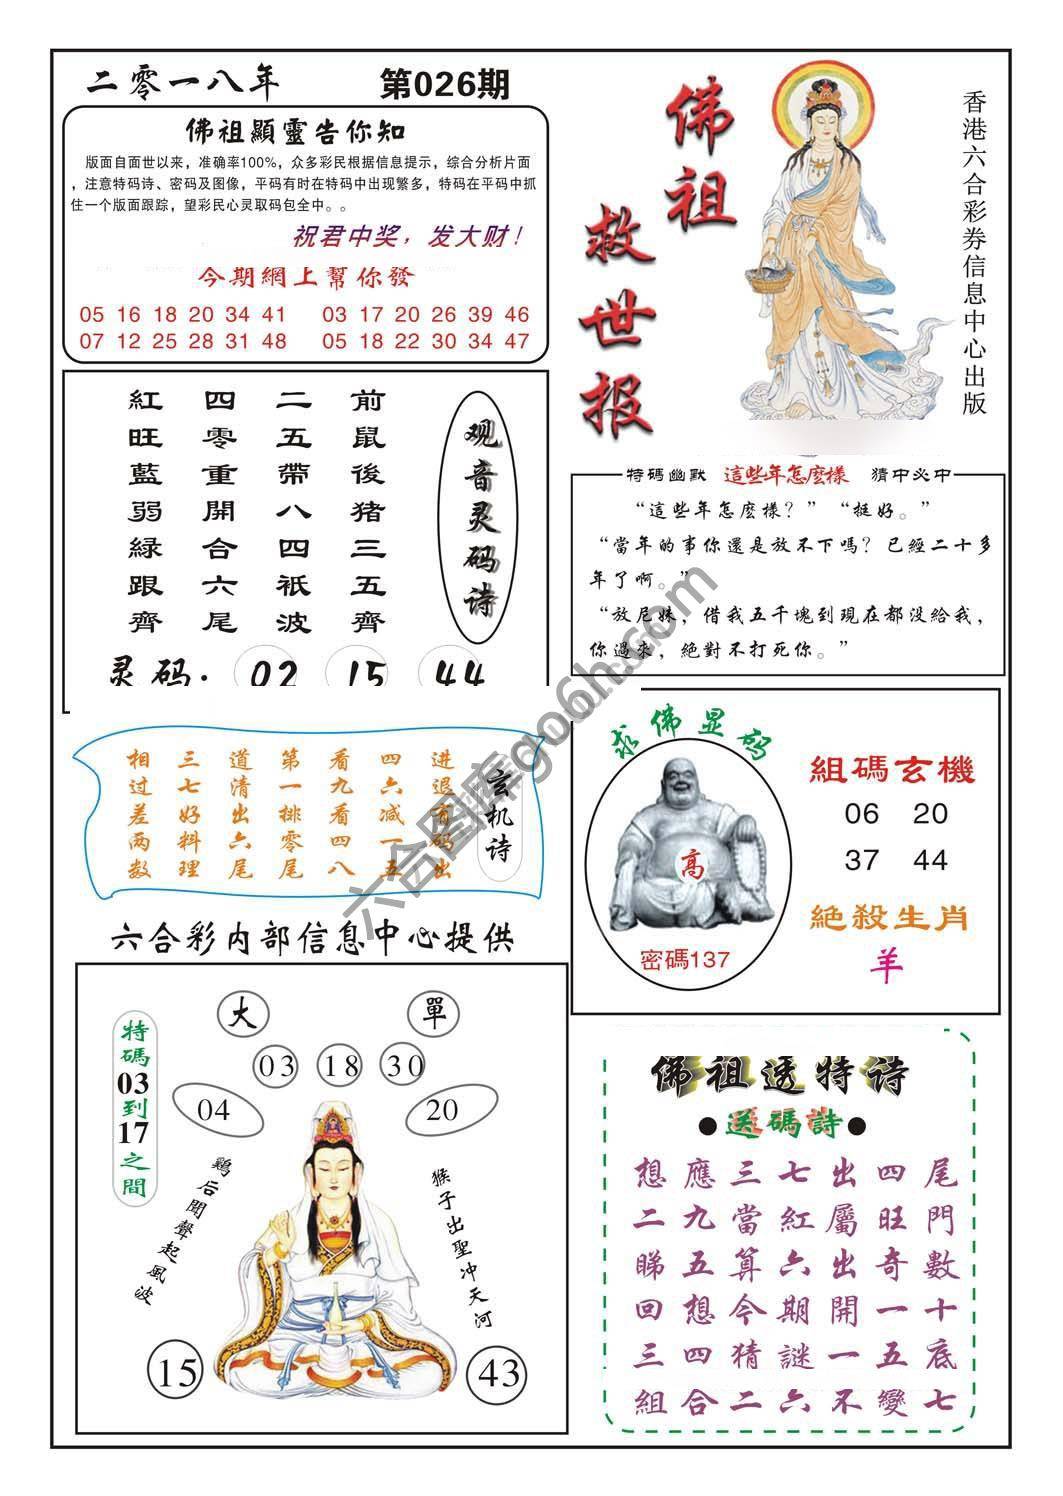 二零一八年 第026期
佛祖顯靈告你知
版面自面世以来，准确率100%，众多彩民根据信息提示，综合分析片面
，注意特码诗、密码及图像，平码有时在特码中出现繁多，特码在平码中抓
住一个版面跟踪，望彩民心灵取码包全中。。
祝君中奖，发大财！
今期網上幫你發
05 16 18 20 34 41 03 17 20 26 39 46
07 12 25 28 31 48 05 18 22 30 34 47
佛祖救世报
香港六合彩券信息中心出版
观音灵码诗
前鼠後猪三五齊
二五帶八四衹波
四零重開合六尾
紅旺藍弱緑跟齊
灵码：02 15 44
特碼幽默 這些年怎麽樣 猜中必中
“這些年怎麽樣？”“挺好。”
“當年的事你還是放不下嗎？已經二十多
年了啊。”
“放尼妹，借我五千塊到現在都没給我，
你過來，絕對不打死你。”
玄机诗
进退有码出
四六减一五
看九看四八
第一排零尾
道清出六尾
三七好料理
相过差两数
求佛显码
高
密碼137
組碼玄機
06 20
37 44
絕殺生肖
羊
六合彩内部信息中心提供
大 單
03 18 30
04 20
特碼03到17之間
鷄后聞聲起風波
猴子出聖冲天河
15 43
佛祖透特诗
●送碼詩●
想應三七出四尾
二九當紅屬旺門
睇五算六出奇數
回想今期開一十
三四猜謎一五底
組合二六不變七
六合图库go6h.com